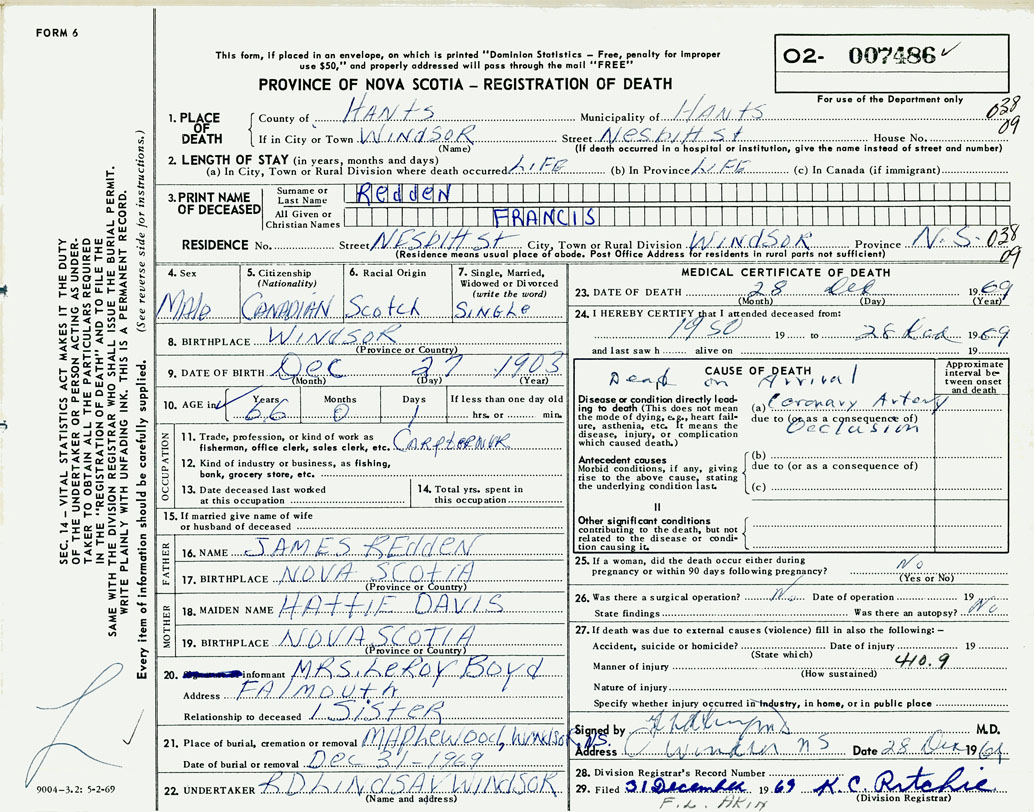 FORM 6
This form, if placed in an envelope, on which is printed "Dominion Statistics – Free, penalty for improper
use $50," and properly addressed will pass through the mail "FREE"
PROVINCE OF NOVA SCOTIA – REGISTRATION OF DEATH
02- 007486
For use of the Department only
038
09
1. PLACE OF DEATH
County of HANTS Municipality of HANTS
If in City or Town WINDSOR Street Nesbitt St House No.
(Name) (If death occurred in a hospital or institution, give the name instead of street and number)
2. LENGTH OF STAY (in years, months and days)
(a) In City, Town or Rural Division where death occurred LIFE (b) In Province LIFE (c) In Canada (if immigrant)
3. PRINT NAME OF DECEASED
Surname or Last Name Redden
All Given or Christian Names FRANCIS
RESIDENCE No. Street NESBITT ST City, Town or Rural Division WINDSOR Province N.S. 038
(Residence means usual place of abode. Post Office Address for residents in rural parts not sufficient) 09
4. Sex
Male
5. Citizenship (Nationality)
CANADIAN
6. Racial Origin
Scotch
7. Single, Married, Widowed or Divorced (write the word)
SINGLE
8. BIRTHPLACE WINDSOR
(Province or Country)
9. DATE OF BIRTH Dec 27 1903
(Month) (Day) (Year)
10. AGE in Years Months Days If less than one day old
66 0 1 hrs. or min.
OCCUPATION
11. Trade, profession, or kind of work as
fisherman, office clerk, sales clerk, etc. CARPTERNER
12. Kind of industry or business, as fishing,
bank, grocery store, etc.
13. Date deceased last worked
at this occupation
14. Total yrs. spent in
this occupation
15. If married give name of wife
or husband of deceased
FATHER
16. NAME JAMES REDDEN
17. BIRTHPLACE NOVA SCOTIA
(Province or Country)
MOTHER
18. MAIDEN NAME HATTIE DAVIS
19. BIRTHPLACE NOVA SCOTIA
(Province or Country)
20. informant MRS. LeROY Boyd
Address FALMOUTH
Relationship to deceased SISTER
21. Place of burial, cremation or removal MAPLEWOOD, WINDSOR NS.
Date of burial or removal DEC 31-1969
22. UNDERTAKER R.D. LINDSAY WINDSOR
(Name and address)
MEDICAL CERTIFICATE OF DEATH
23. DATE OF DEATH 28 Dec 1969
(Month) (Day) (Year)
24. I HEREBY CERTIFY that I attended deceased from:
1950 19 to 28 19 69
and last saw h alive on 19
CAUSE OF DEATH
Approximate interval between onset and death
Dead on Arrival
Disease or condition directly leading to death (This does not mean the mode of dying, e.g., heart failure, asthenia, etc. It means the disease, injury, or complication which caused death.)
(a) Coronary Artery
due to (or as a consequence of)
Occlusion
Antecedent causes
Morbid conditions, if any, giving rise to the above cause, stating the underlying condition last.
(b)
due to (or as a consequence of)
(c)
II
Other significant conditions
contributing to the death, but not related to the disease or condition causing it.
25. If a woman, did the death occur either during
pregnancy or within 90 days following pregnancy? No
(Yes or No)
26. Was there a surgical operation? No Date of operation 19
State findings Was there an autopsy? No
27. If death was due to external causes (violence) fill in also the following: –
Accident, suicide or homicide? Date of injury 19
(State which)
Manner of injury 410.9
(How sustained)
Nature of injury
Specify whether injury occurred in industry, in home, or in public place
Signed by M.D.
Address Windsor NS Date 28 Dec 1969
28. Division Registrar's Record Number
29. Filed 31 December 1969 K. C. Ritchie
(Division Registrar)
F. L. AKIN
SEC. 14 – VITAL STATISTICS ACT MAKES IT THE DUTY
OF THE UNDERTAKER OR PERSON ACTING AS UNDER-
TAKER TO OBTAIN ALL THE PARTICULARS REQUIRED
IN THE "REGISTRATION OF DEATH" AND TO FILE THE
SAME WITH THE DIVISION REGISTRAR WHO SHALL ISSUE THE BURIAL PERMIT.
WRITE PLAINLY WITH UNFADING INK. THIS IS A PERMANENT RECORD.
Every item of information should be carefully supplied. (See reverse side for instructions.)
9004-3.2: 5-2-69